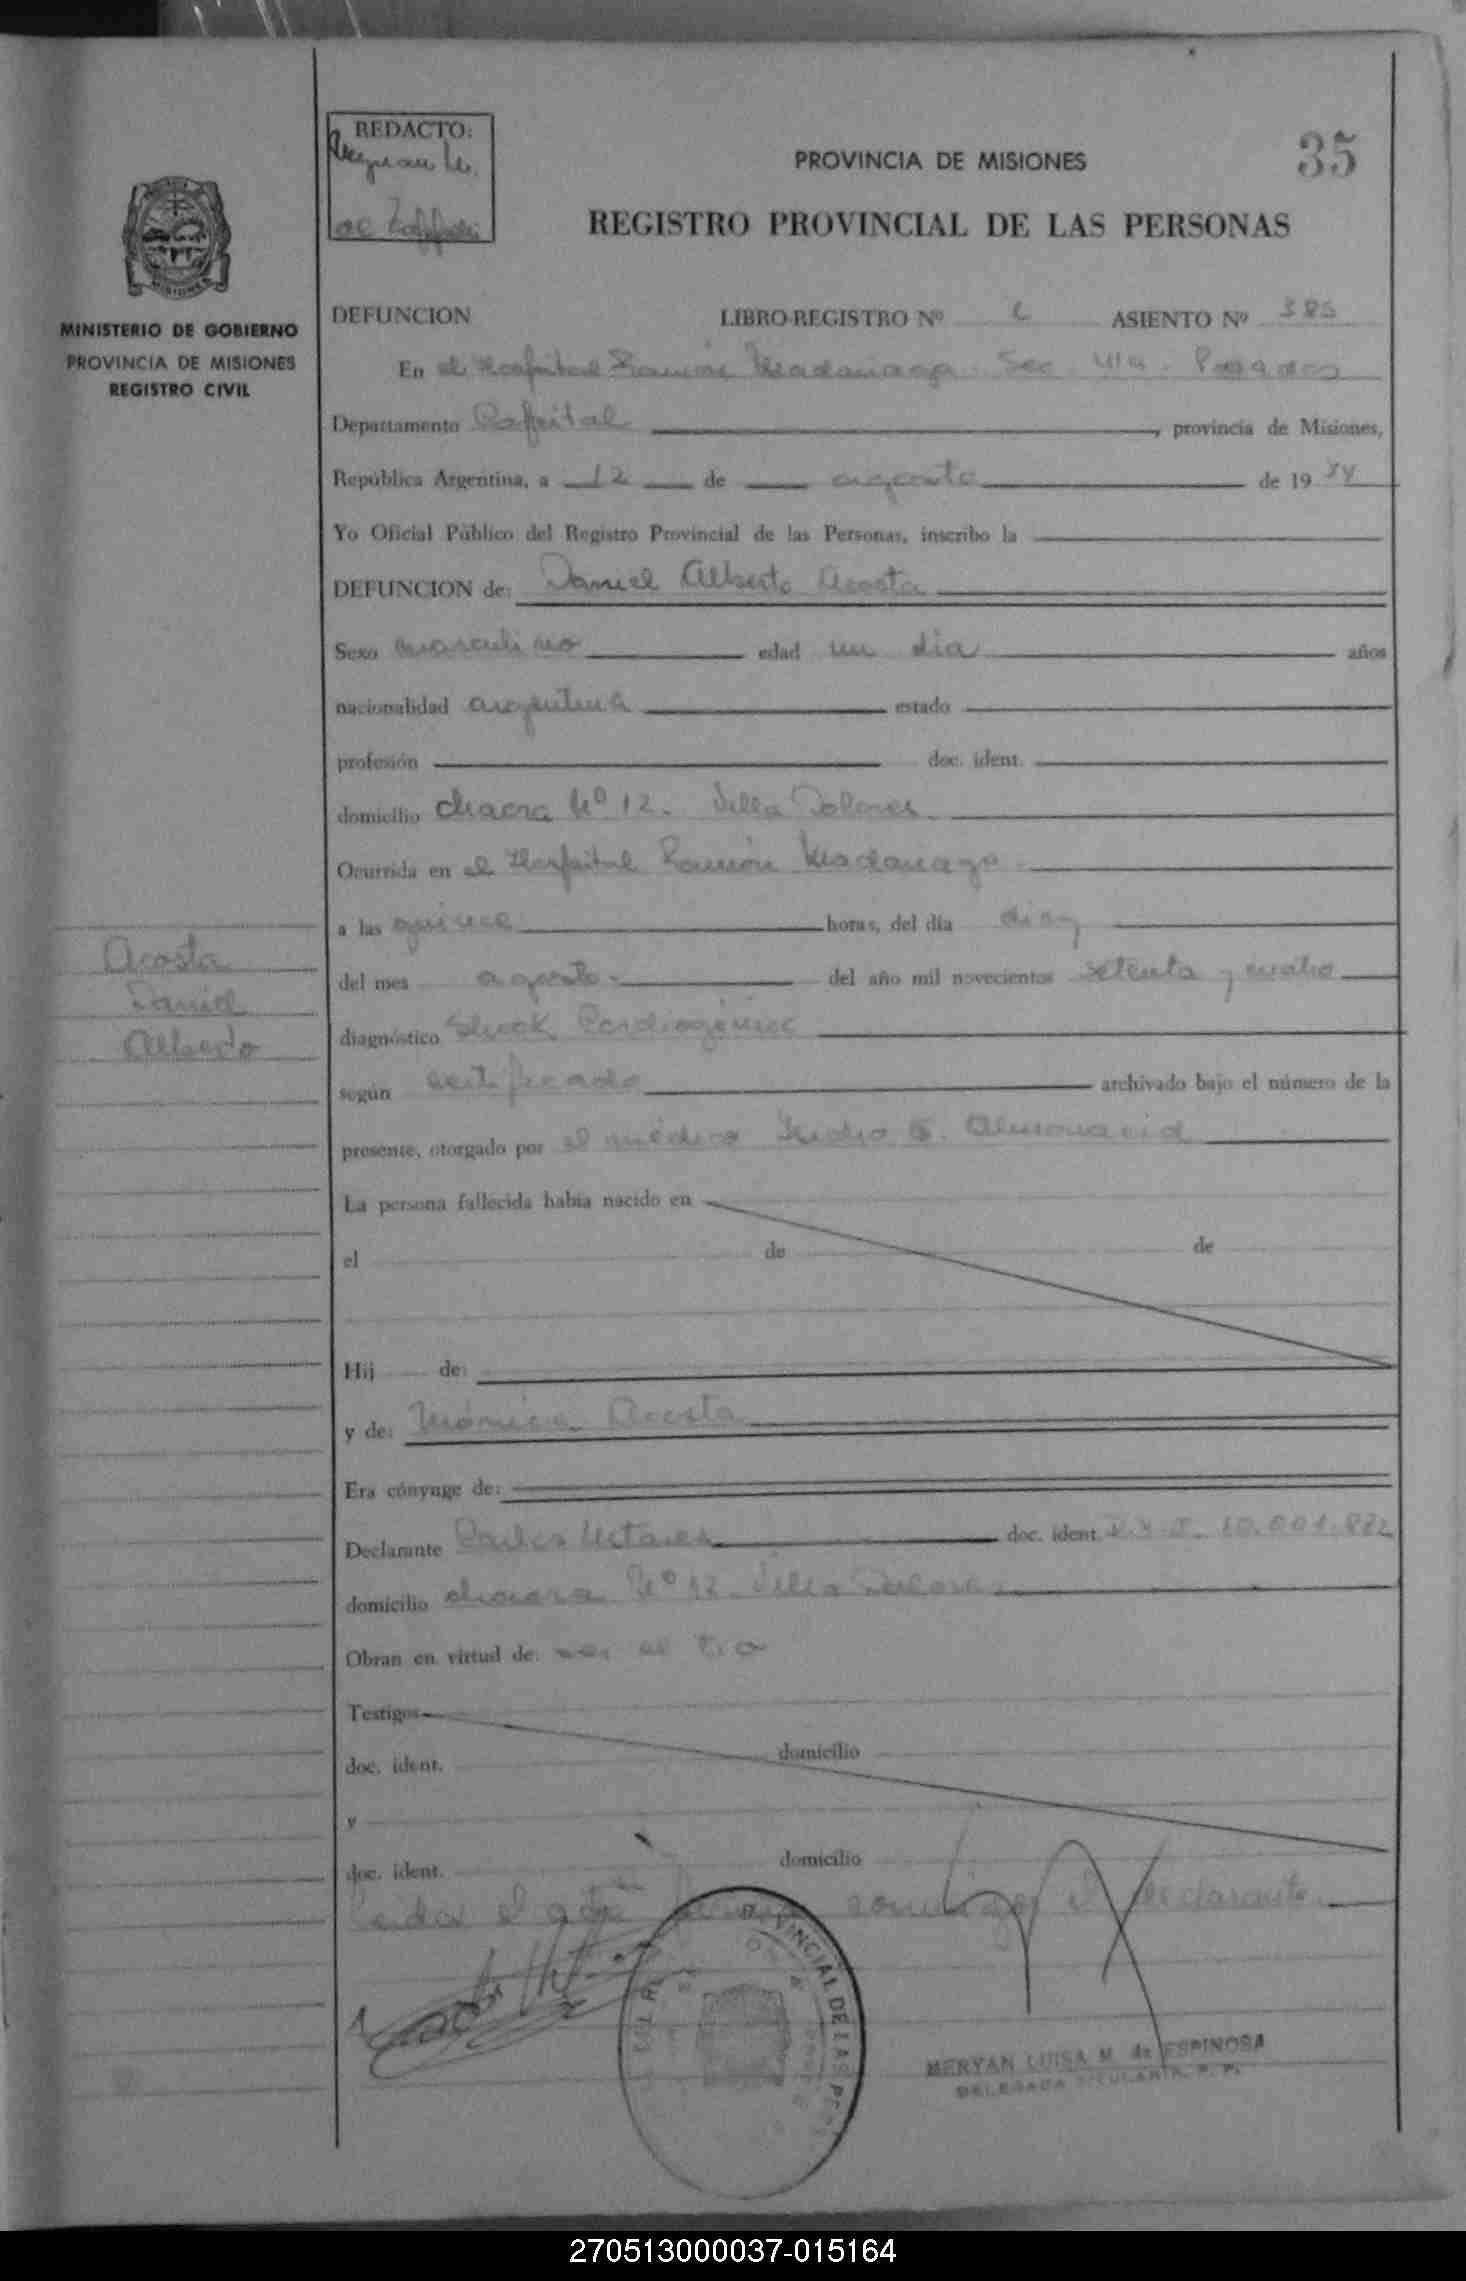 REDACTO:
35
PROVINCIA DE MISIONES
REGISTRO PROVINCIAL DE LAS PERSONAS
MINISTERIO DE GOBIERNO
PROVINCIA DE MISIONES
REGISTRO CIVIL
DEFUNCION LIBRO-REGISTRO Nº ASIENTO Nº 385
En el Hospital Ramón Madariaga. Sec. 4ta. Posadas
Departamento Capital, provincia de Misiones,
República Argentina, a 12 de agosto de 1974
Yo Oficial Público del Registro Provincial de las Personas, inscribo la
DEFUNCION de: Daniel Alberto Acosta
Sexo masculino edad un dia años
nacionalidad argentina estado
profesión doc. ident.
domicilio chacra Nº 12. Villa Dolores.
Ocurrida en el Hospital Ramón Madariaga
a las quince horas, del día diez
Acosta
Daniel
Alberto
del mes agosto.- del año mil novecientos setenta y cuatro
diagnóstico Shock Cardiogénico
según certificado archivado bajo el número de la
presente, otorgado por el médico Isidro Almonacid
La persona fallecida había nacido en
el de de
Hij de:
y de: Mónica Acosta
Era cónyuge de:
Declarante Carlos doc. ident. 10.001.822
domicilio chacra Nº 12 Villa Dolores
Obran en virtud de: ser el tio
Testigos
doc. ident. domicilio
y
doc. ident. domicilio
Leida el acta firma conmigo el declarante.
PROVINCIAL DE LAS
MERYAN LUISA M. de ESPINOSA
DELEGADA TITULAR R. P. P.
270513000037-015164